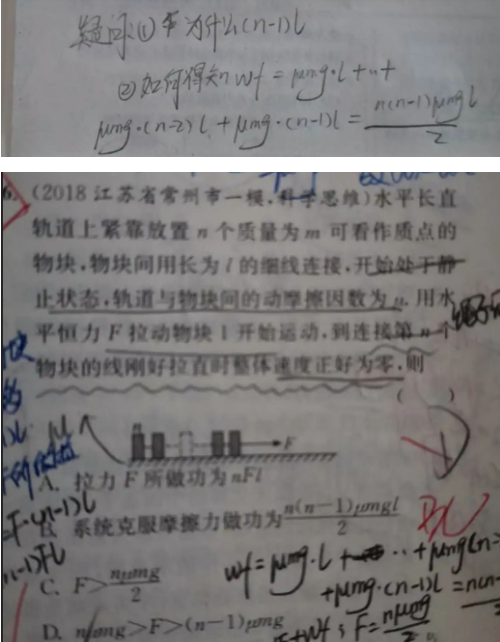 疑问:① 为什么(n-1)l
②如何得知Wf=μmg·l+…+
μmg·(n-2)l+μmg·(n-1)l=n(n-1)μmgl/2
6.(2018江苏省常州市一模,科学思维)水平长直
轨道上紧靠放置n个质量为m可看作质点的
物块,物块间用长为l的细线连接,开始处于静
止状态,轨道与物块间的动摩擦因数为μ.用水
平恒力F拉动物块1开始运动,到连接第n个
物块的线刚好拉直时整体速度正好为零,则
( )
n 1 F
A. 拉力F所做功为nFl
=F·(n-1)l
B. 系统克服摩擦力做功为n(n-1)μmgl/2
BC
(n-1)Fl
Wf=μmg·l+ ··+μmg(n-
C. F>nμmg/2
+μmg·(n-1)l=n(n-
D. nμmg>F>(n-1)μmg
F=nμmg/2